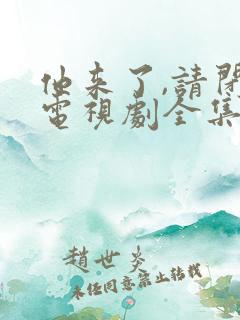 他来了,請閉
電視劇全集
趙世炎
未经同意禁止转载